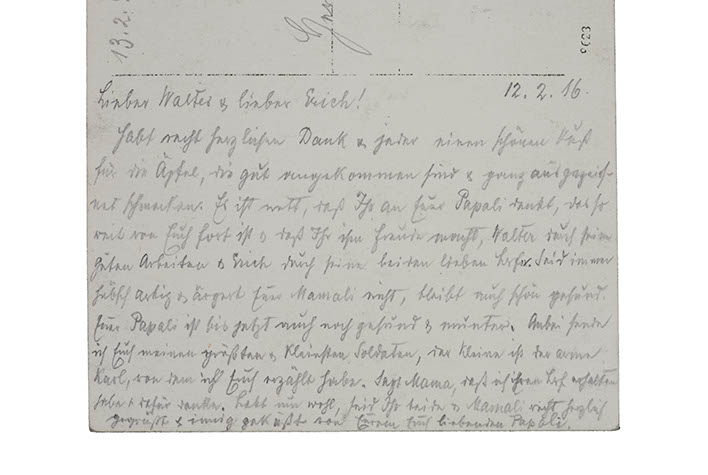 13.2.
3623
12.2.16.
Lieber Walter & lieber Erich!
Habt recht herzlichen Dank & jeder einen schönen Kuß
für die Äpfel, die gut angekommen sind & ganz ausgezeich-
net schmecken. Es ist nett, daß Ihr an Euer Papali denkt, das so
weit von Euch fort ist & daß Ihr ihm Freude macht, Walter durch seine
guten Arbeiten & Erich durch seine beiden lieben Briefe. Seid immer
hübsch artig & ärgert Euer Mamali nicht, bleibt auch schön gesund.
Euer Papali ist bis jetzt auch noch gesund & munter. Anbei sende
ich Euch meinen größten & kleinsten Soldaten, der kleine ist der arme
Karl, von dem ich Euch erzählt habe. Sagt Mama, daß ich ihren Brf erhalten
habe & dafür danke. Lebt nun wohl, seid Ihr beide & Mamali recht herzlich
gegrüßt & innig geküßt von Eurem Euch liebenden Papali.